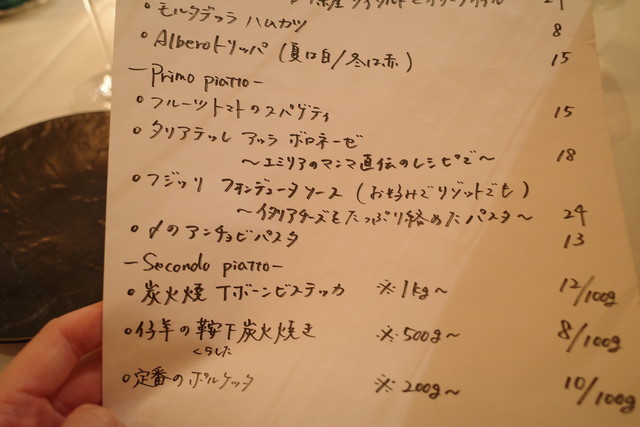 24
○モルタデッラ ハムカツ 8
○Alberoトリッパ (夏は白/冬は赤) 15
—Primo piatto—
○フルーツトマトのスパゲティ 15
○タリアテッレ アッラ ボロネーゼ
〜エミリアのマンマ直伝のレシピで〜 18
○フジッリ フォンデュータソース (お好みでリゾットでも)
〜イタリアチーズをたっぷり絡めたパスタ〜 24
○〆のアンチョビパスタ 13
—Secondo piatto—
○炭火焼 Tボーンビステッカ ※1kg〜 12/100g
○仔羊の鞍下炭火焼き ※500g〜 8/100g
くらした
○定番のポルケッタ ※200g〜 10/100g